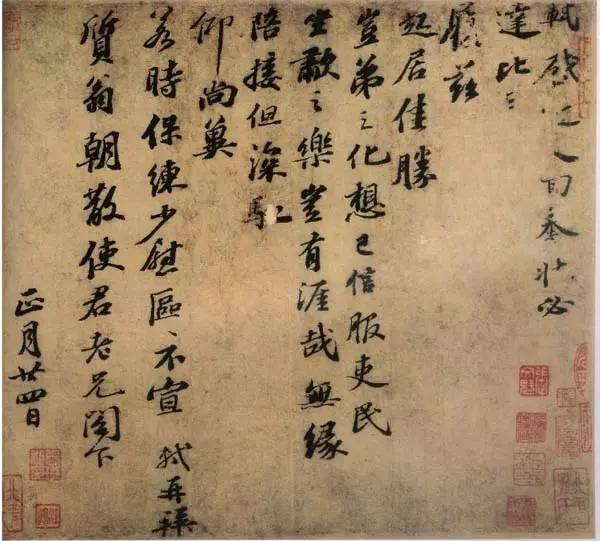 軾啓近人回奉狀必
達比
履茲
起居佳勝
豈弟之化想已信服吏民
坐嘯之樂豈有涯哉無緣
陪接但深馳
仰尚冀
若時保練少慰區々不宣 軾再拜
質翁朝散使君老兄閤下
正月廿四日